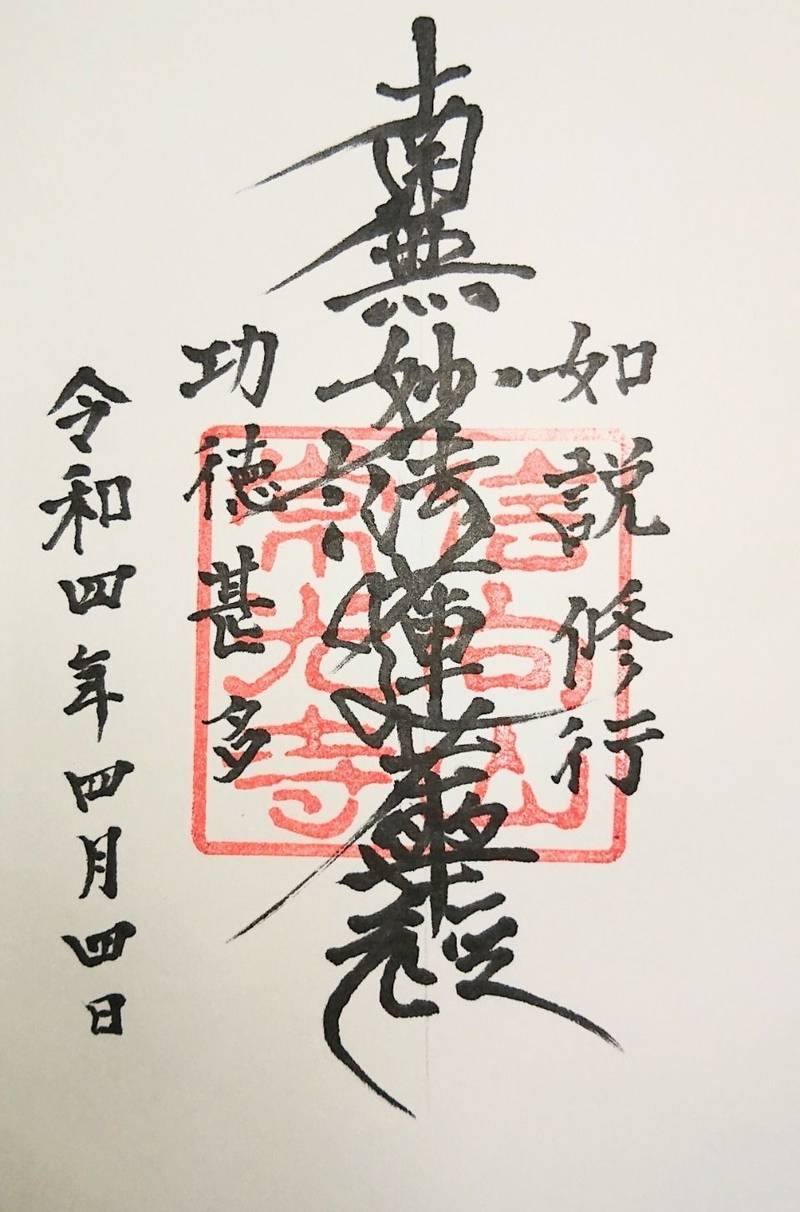 如説修行
南無妙法蓮華經
功徳甚多
令和四年四月四日
常光寺